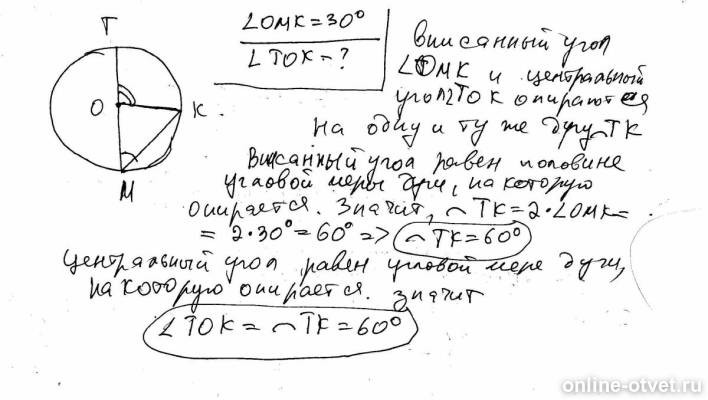 T
O
K
M
∠OMK = 30°
∠TOK = ?
Вписанный угол
∠OMK и центральный
угол ∠TOK опираются
на одну и ту же дугу ⌒TK
Вписанный угол равен половине
угловой меры дуги, на которую
опирается. Значит, ⌒TK = 2·∠OMK =
= 2·30° = 60° => ⌒TK = 60°
Центральный угол равен угловой мере дуги,
на которую опирается. Значит
∠TOK = ⌒TK = 60°
online-otvet.ru